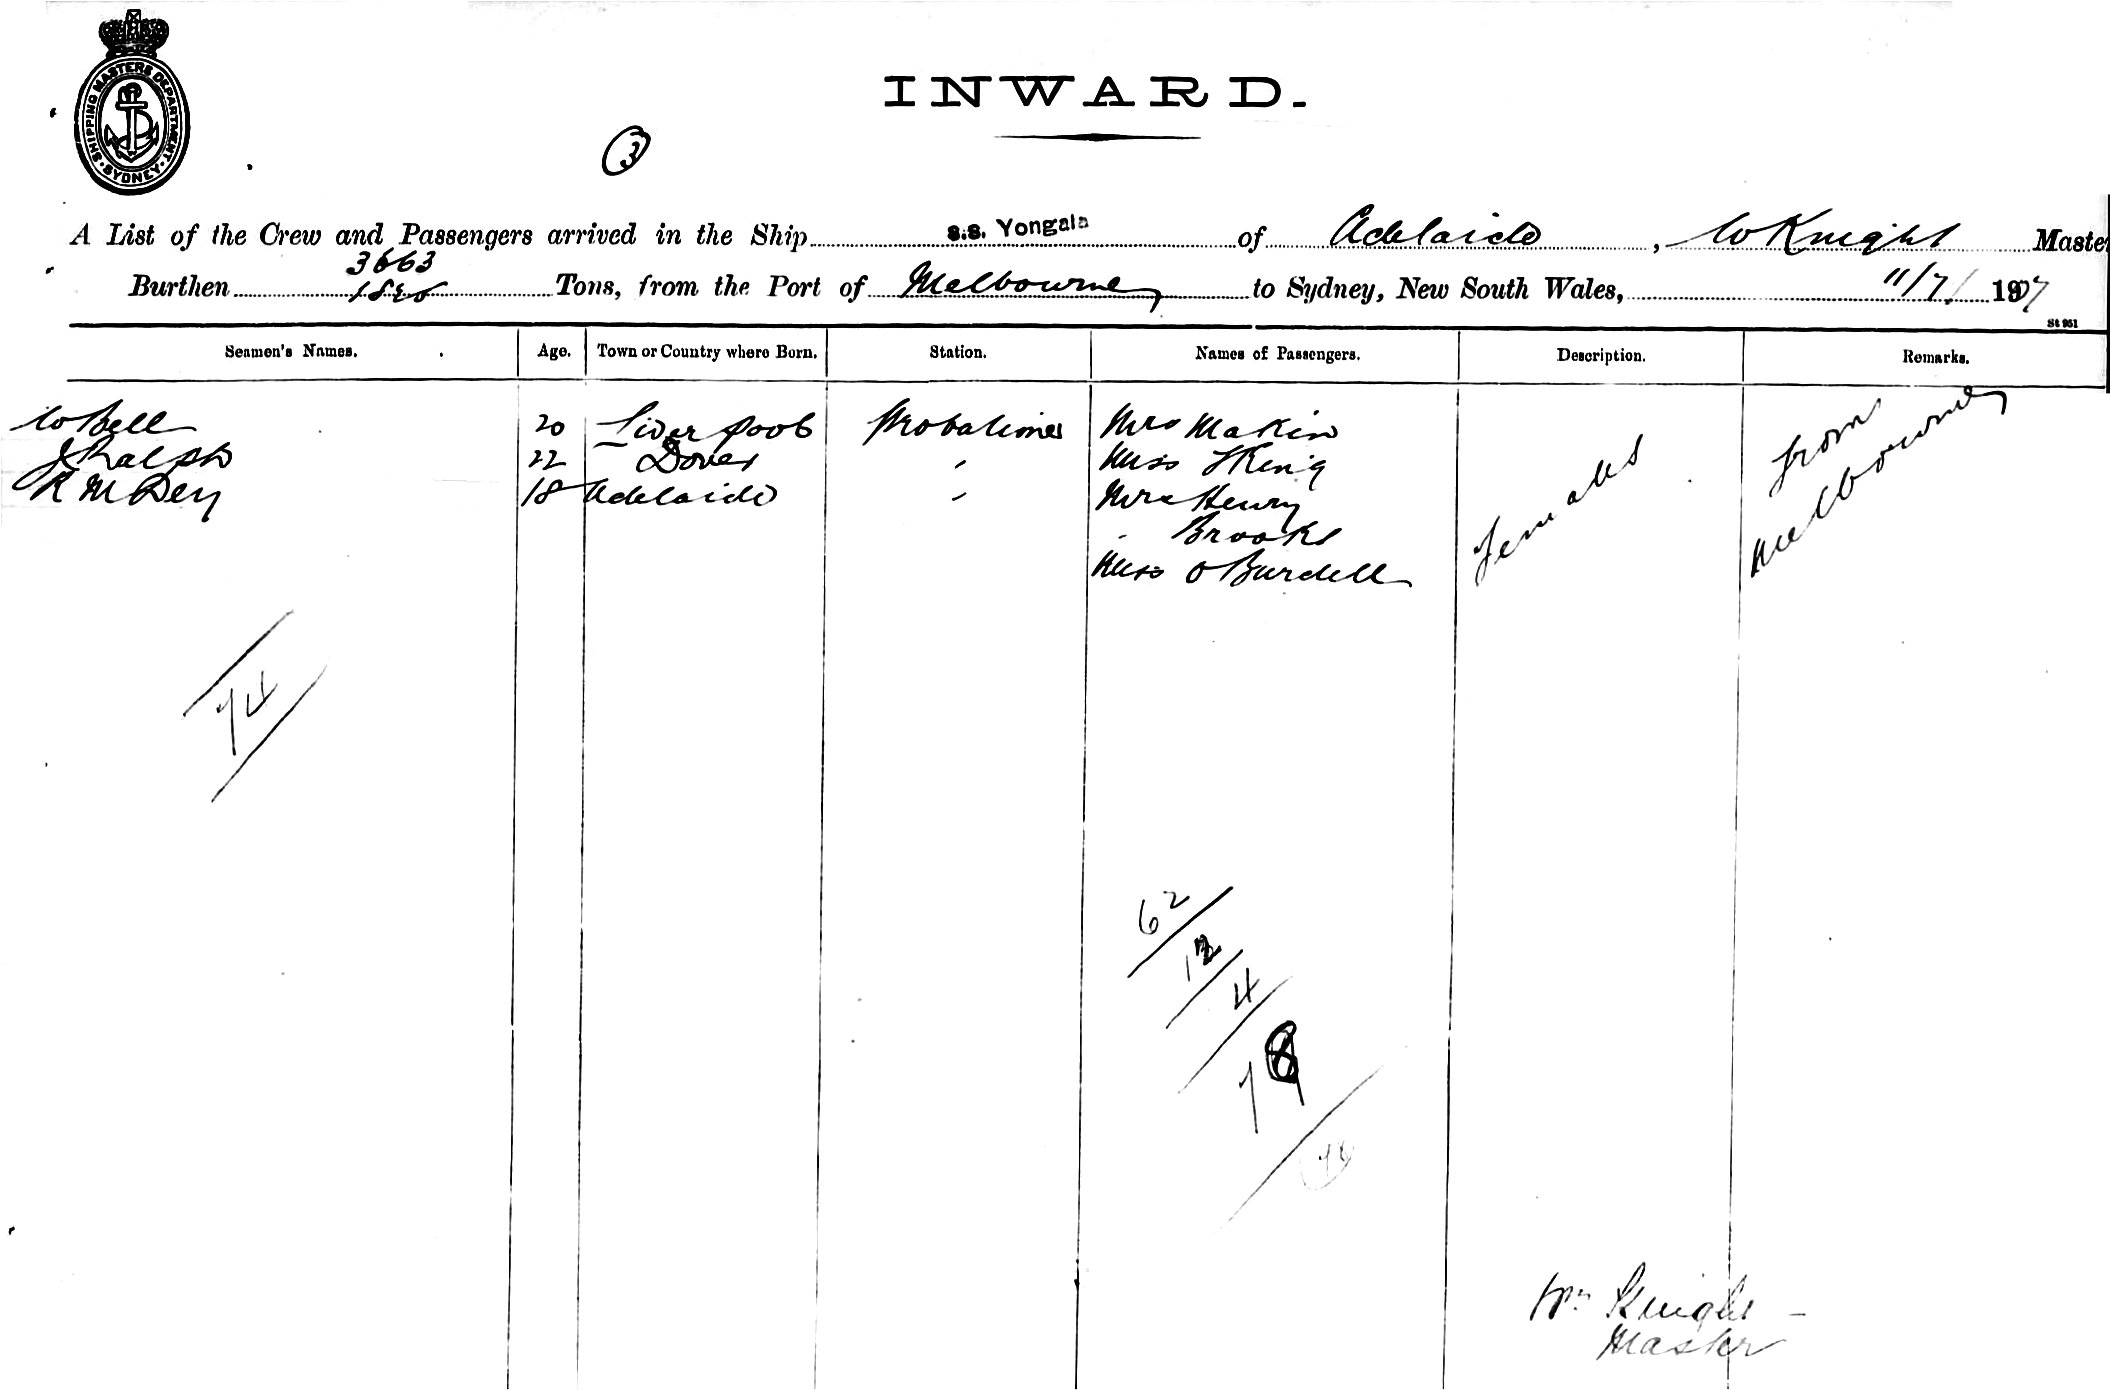 SHIPPING MASTERS DEPARTMENT · SYDNEY ·
INWARD.
3
A List of the Crew and Passengers arrived in the Ship s.s. Yongala of Adelaide, W Knight Master
3663
Burthen Tons, from the Port of Melbourne to Sydney, New South Wales, 11/7/1907
St 951
Seamen's Names. Age. Town or Country where Born. Station. Names of Passengers. Description. Remarks.
W Bell 20 Liverpool Probationer Mrs Makin Females from Melbourne
J Ralph 22 Dover " Miss King
R M Dey 18 Adelaide " Mrs Henry
" Brooks
Miss O Burdell
74
62
12
4
78
Wm Knight
Master